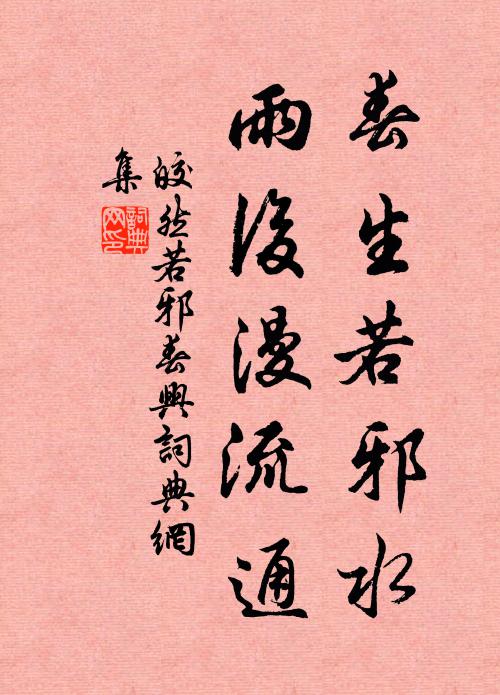 春生若邪水
雨後漫流通
皎然若邪春興詞典網
集
詞典
网印